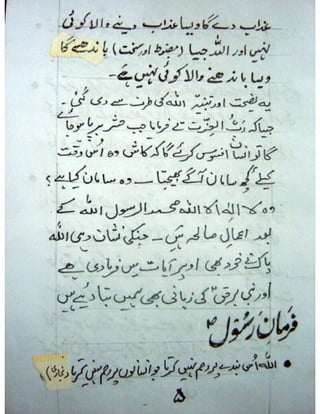 عذاب دے گا ویسا عذاب دینے والا کوئی
نہیں اور اللہ جیسا (مضبوط اور سخت) باندھے گا
ویسا باندھنے والا کوئی نہیں ہے۔
یہ نصیحت اور تنبیہ اللہ کی طرف سے دی گئی ہے
جیسا کہ ربُّ العِزّت نے فرمایا جب حشر بپا ہو گا
گا تو انسان افسوس کرے گا کہ کاش وہ اُس وقت
کیلئے کچھ سامان آگے بھیجتا۔ وہ سامان کیا ہے؟
وہ لا الٰہ الا اللہ محمد الرسول اللہ کے
بعد اعمالِ صالحہ ہیں۔ جنکی نشان دہی اللہ
پاک نے خود بھی اوپر آیات میں فرما دی ہے
اور نبی برحق کی زبانی بھی ہمیں بتا دیے ہیں
فرمانِ رسول
• اللہ اُس بندے پر رحم نہیں کرتا جو انسانوں پر رحم نہیں کرتا (بخاری)
۵